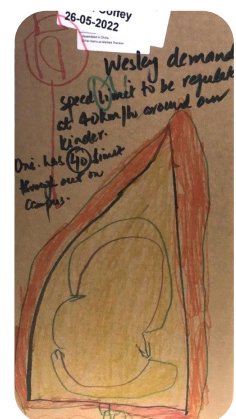 Coffey
26-05-2022
Wesley demand
speed limit to be regulate
at 40km/h around our
kinder.
Uni has 40 limit
through out on
campus.